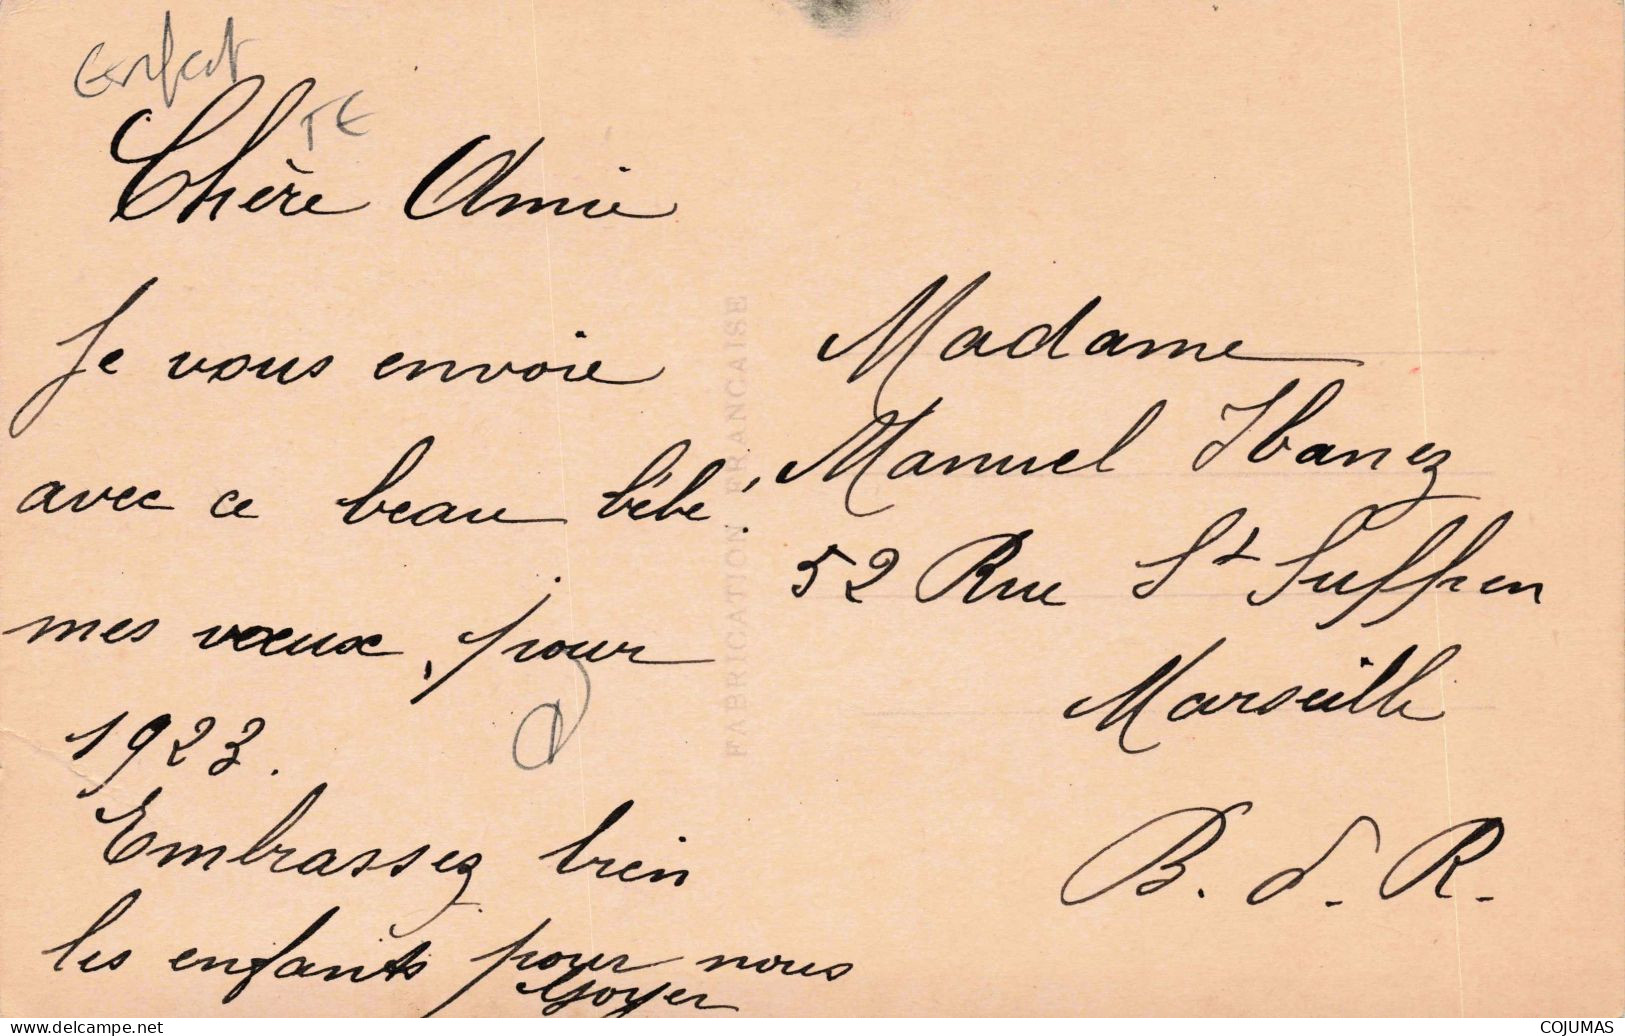 enfant
TE
Chère Amie
Je vous envoie
avec ce beau bébé!
mes voeux, pour
1923.
Embrassez bien
les enfants pour nous
Goyer
FABRICATION FRANCAISE
Madame
Manuel Ibanez
52 Rue St Suffren
Marseille
B. d. R.
delcampe.net
COJUMAS